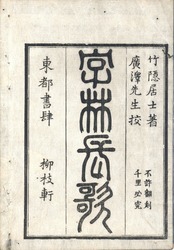 竹隠居士著
廣澤先生挍
不許翻刻
千里必究
字林長歌
東都書肆
柳枝軒